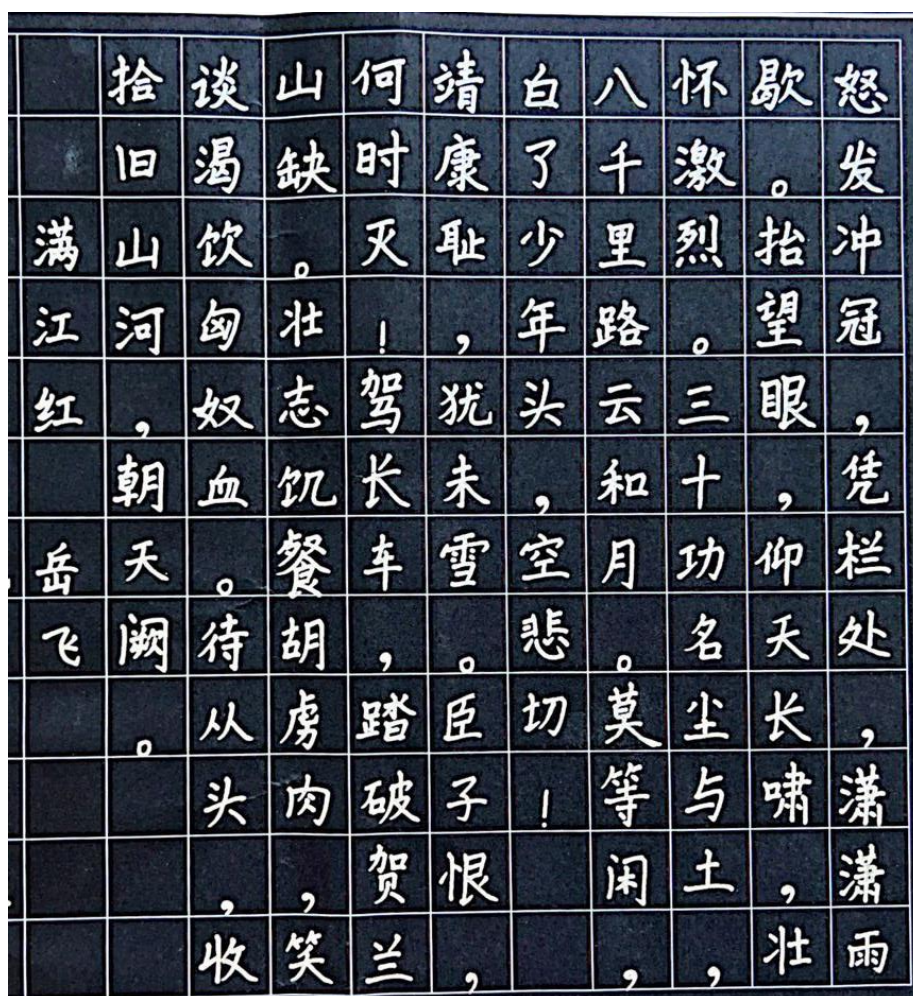 怒发冲冠，凭栏处，潇潇雨
歇。抬望眼，仰天长啸，壮
怀激烈。三十功名尘与土，
八千里路云和月。莫等闲，
白了少年头，空悲切！
靖康耻，犹未雪。臣子恨，
何时灭！驾长车，踏破贺兰
山缺。壮志饥餐胡虏肉，笑
谈渴饮匈奴血。待从头，收
拾旧山河，朝天阙。
满江红 岳飞